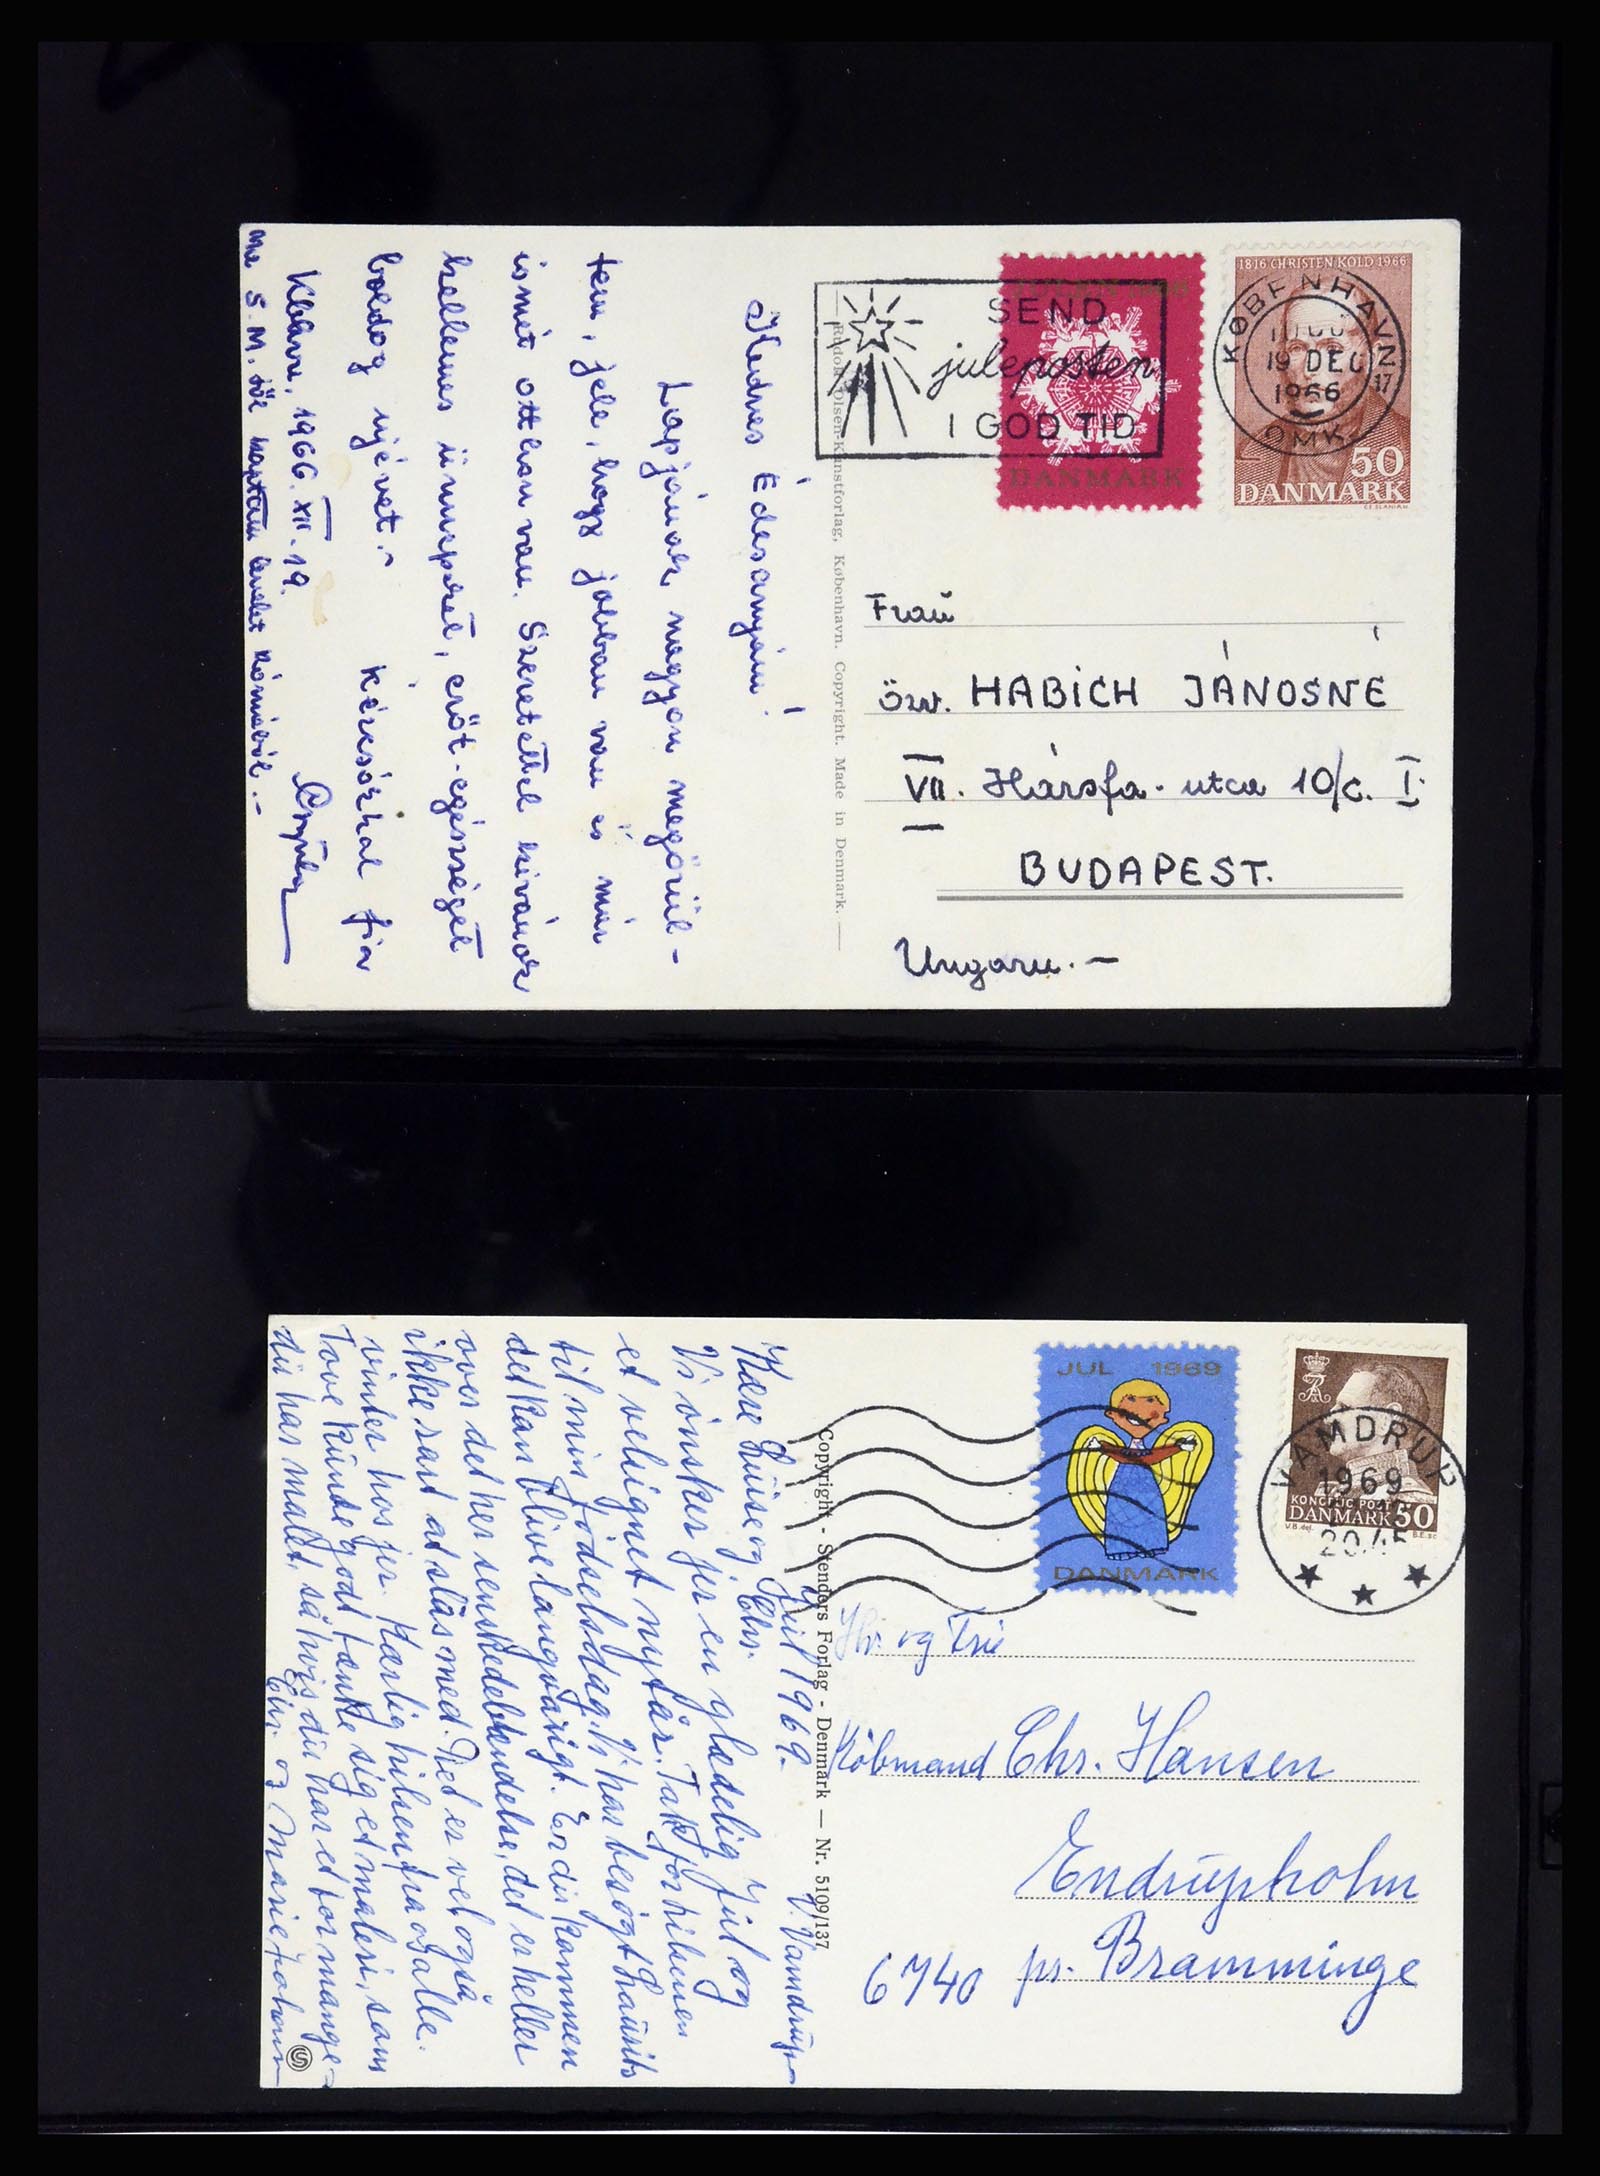 Kedves Édesanyám!
Lapjának nagyon megörül-
tem, jele, hogy jobban van és már
ismét otthon van. Szeretettel kívánok
kellemes ünnepet, erőt-egészséget
boldog újévet.-
Kézcsókkal fia
Kbhvn, 1966. XII. 19.
Ma S. M.-től kaptam levelet Rómából.-
Rudolf Olsen-Kunstforlag, København. Copyright. Made in Denmark.
SEND
juleposten
I GOD TID
DANMARK
1816 CHRISTEN KOLD 1966
50
DANMARK
KØBENHAVN
19 DEC 17
1966
OMK.
Frau
özv. HABICH JÁNOSNÉ
VII. Hársfa-utca 10/c. I.
BUDAPEST.
Ungarn.-
V. Vamdrup
Jul 1969.
Kære Luise og Chr.
Vi ønsker jer en glædelig Jul og
et velsignet nytår. Tak for hilsenen
til min fødselsdag. Vi har besøgt Laurits
det kan blive langvarigt. Er du kommen
over det her senskedebtændelse, det er heller
ikke rart at slås med. Det er vel også
vinter hos jer. Kærlig hilsen fra os alle.
Tove kunde godt tænke sig et maleri, som
du har malet, så hvis du har et for mange-
Chr. og Marie
Copyright - Stenders Forlag - Denmark — Nr. 5109/137
JUL 1969
DANMARK
KONGELIG POST
DANMARK 50
VAMDRUP
1969
20.45
Hr. og Frue
Købmand Chr. Hansen
Endrupholm
6740 pr. Bramminge